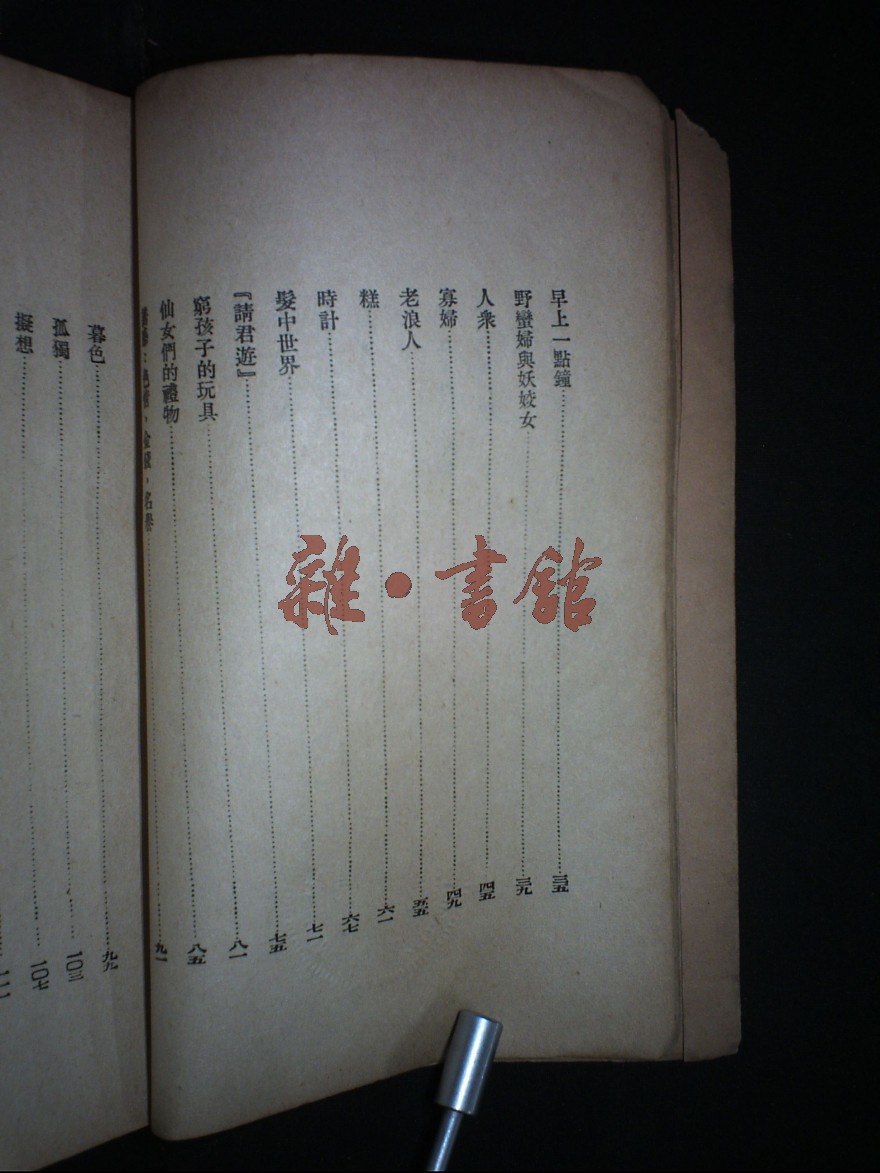 早上一點鐘……三五
野蠻婦與妖姣女……三九
人衆……四五
寡婦……四九
老浪人……五五
糕……六一
時計……六七
髮中世界……七一
『請君遊』……七五
窮孩子的玩具……八一
仙女們的禮物……八五
色情,金錢,名譽……九一
暮色……九九
孤獨……一〇三
擬想……一〇七
一一一
雜•書館